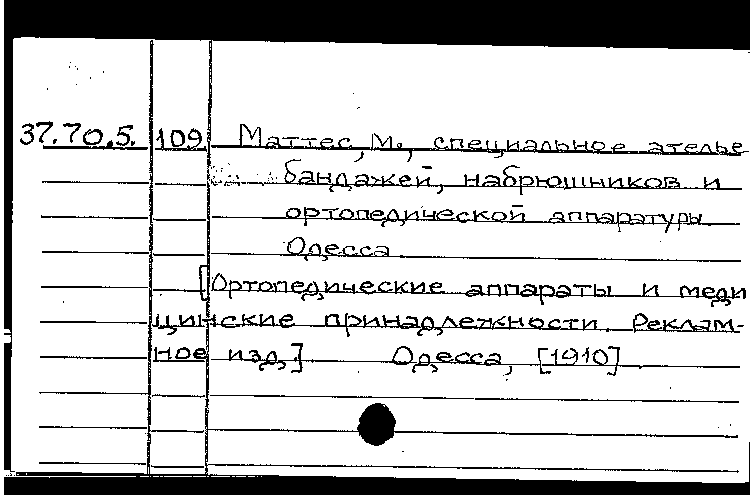 37.70.5. 109 Маттес, М., специальное ателье
бандажей, набрюшников и
ортопедической аппаратуры.
Одесса.
[Ортопедические аппараты и меди
цинские принадлежности. Реклам-
ное изд.] Одесса, [1910]